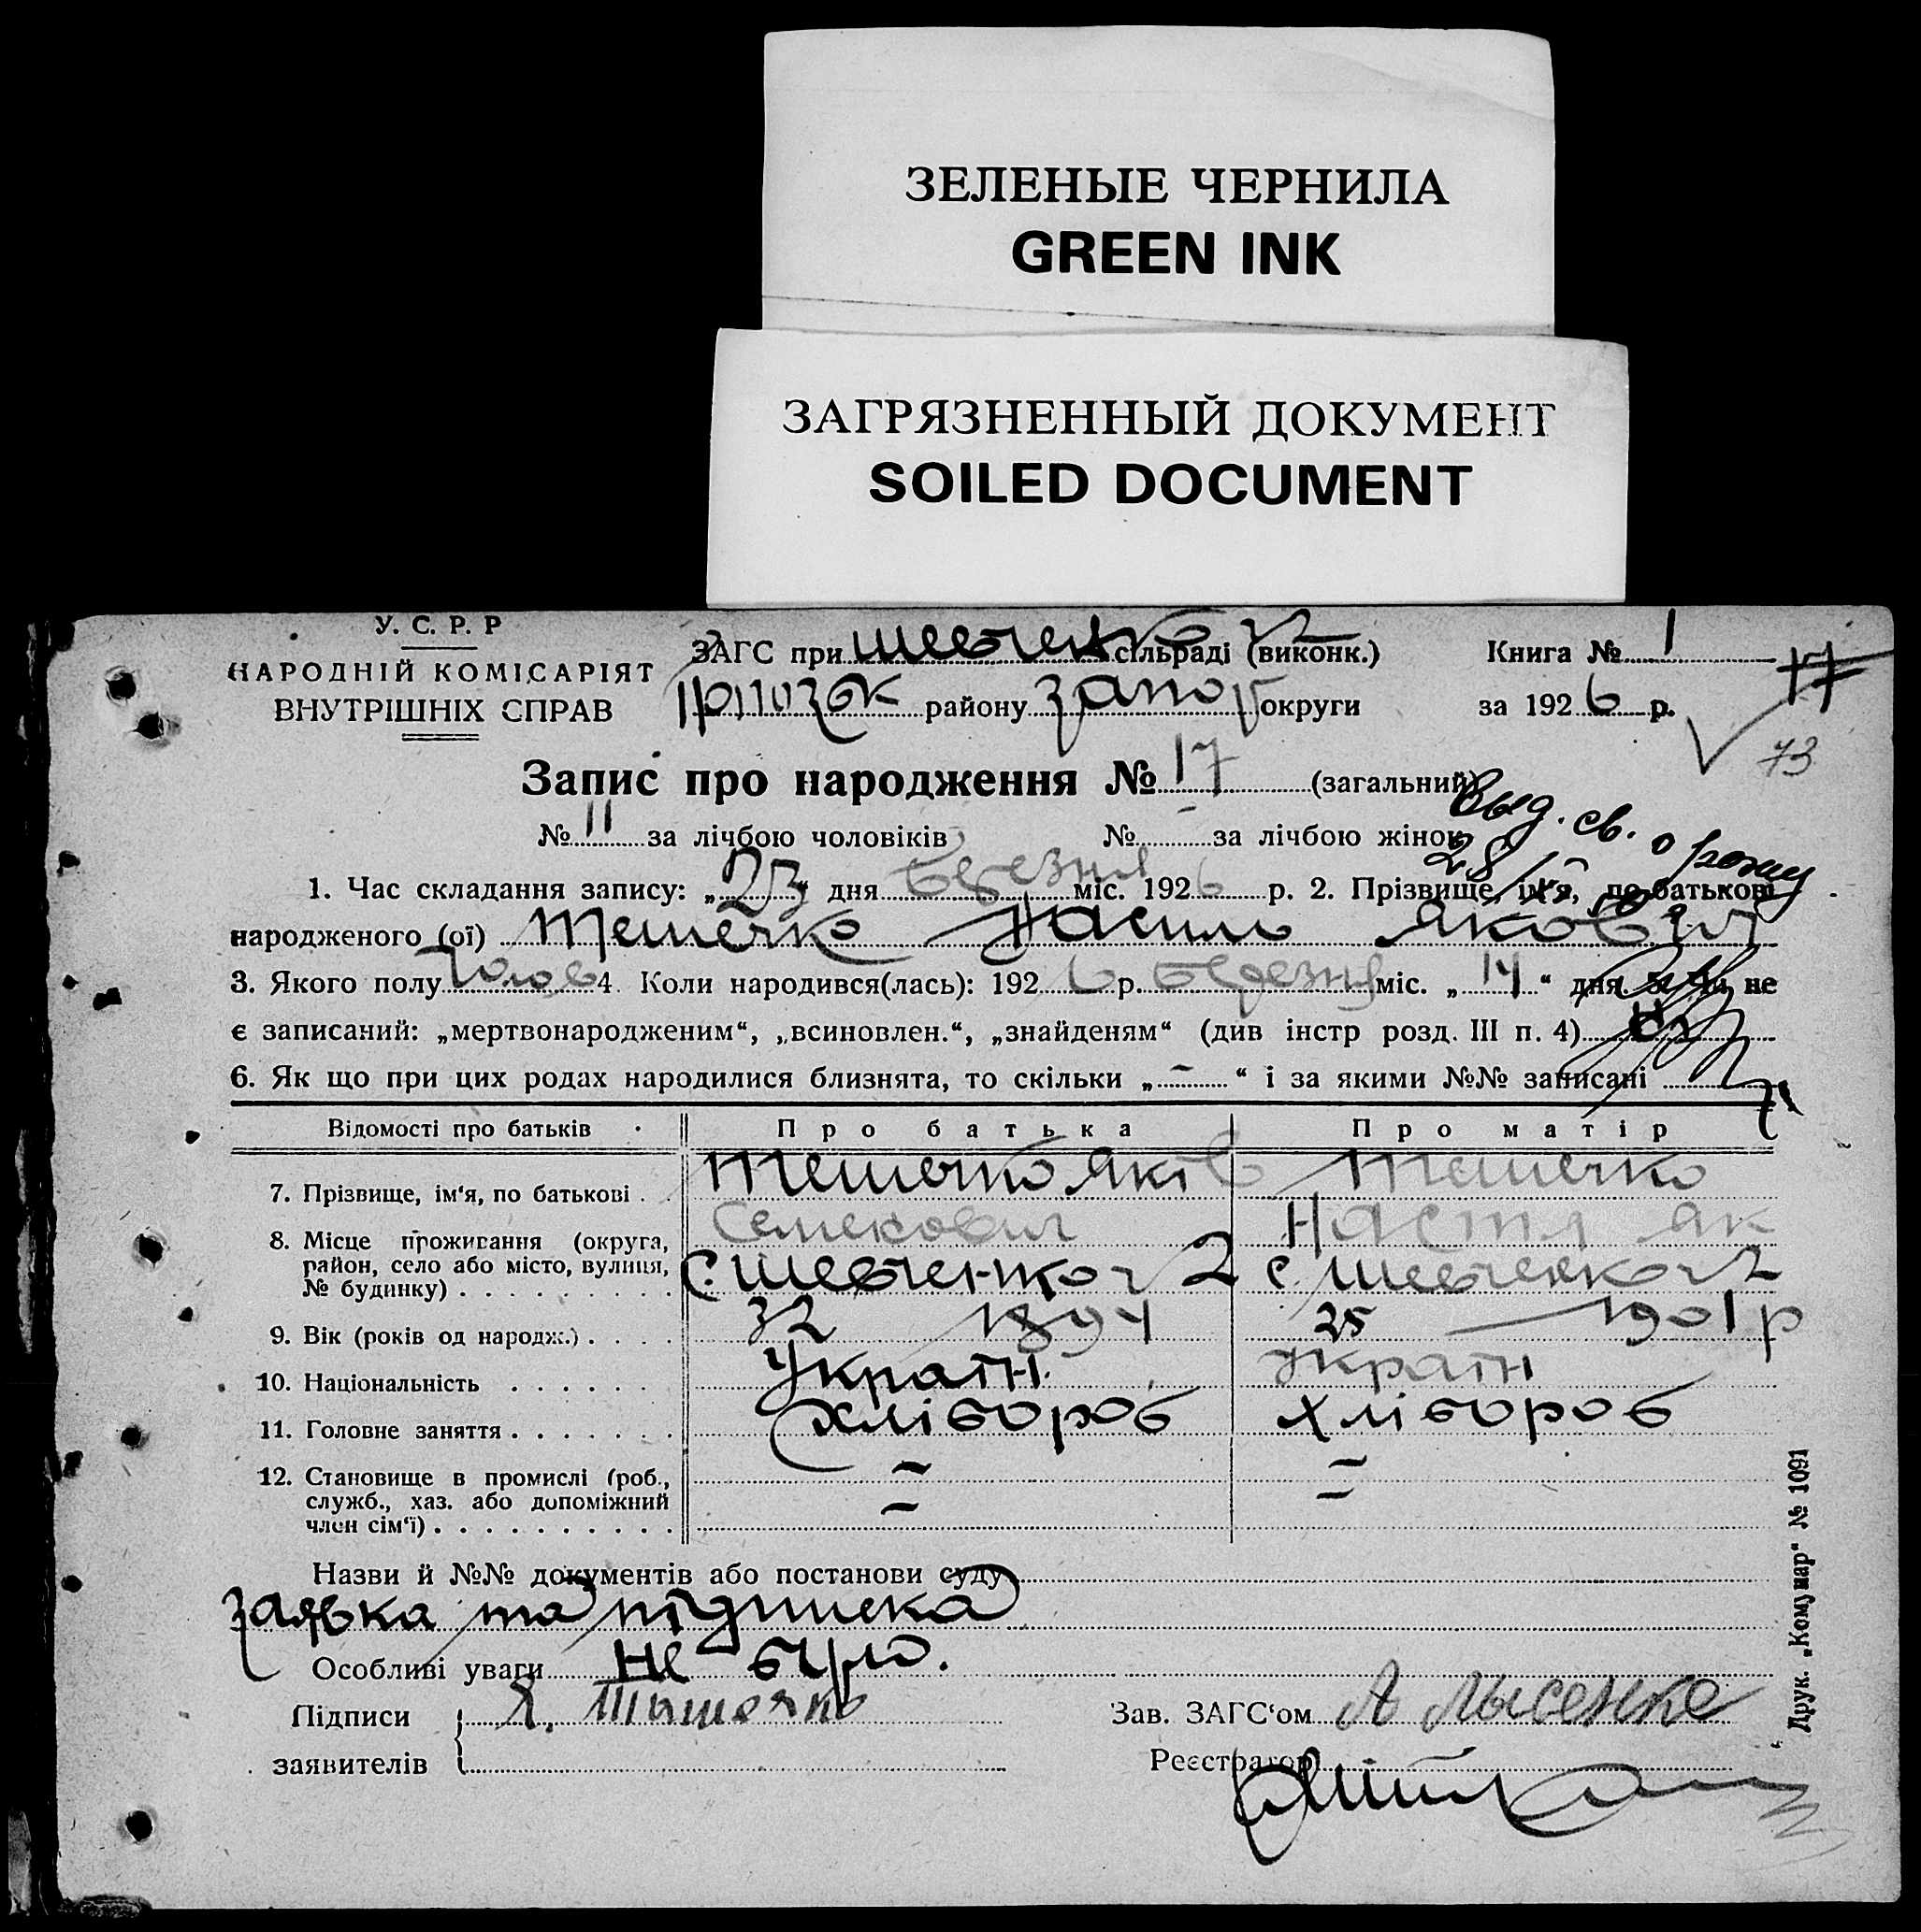 ЗЕЛЕНЫЕ ЧЕРНИЛА
GREEN INK
ЗАГРЯЗНЕННЫЙ ДОКУМЕНТ
SOILED DOCUMENT
У. С. Р. Р
НАРОДНІЙ КОМІСАРІЯТ
ВНУТРІШНІХ СПРАВ
ЗАГС при сільраді (виконк.)
району запор округи
Книга № 1
за 1926 р.
17
73
Запис про народження № 17 (загальний)
№ 11 за лічбою чоловіків № - за лічбою жінок
Выд. св. о рожд
1. Час складання запису: „23“ дня березня міс. 1926 р. 2. Прізвище, ім'я, по батькові
народженого (ої) Тешечко Василь Якович
3. Якого полу чолов 4. Коли народився(лась): 1926 р. березня міс. „14“ дня 5. Чи не
є записаний: „мертвонародженим“, „всиновлен.“, „знайденям“ (див інстр розд. III п. 4)
6. Як що при цих родах народилися близнята, то скільки „-“ і за якими №№ записані
Відомості про батьків Про батька Про матір
7. Прізвище, ім'я, по батькові Тешечко Яків Тешечко
Семенович Настя Як
8. Місце проживання (округа, район, село або місто, вулиця, № будинку) с. Шевченко 2 с. Шевченко 2
9. Вік (років од народж.) 32 1894 25 — 1901 р
10. Національність Україн. Україн
11. Головне заняття хлібороб хлібороб
12. Становище в промислі (роб., - -
служб., хаз. або допоміжний - -
член сім'ї)
Назви й №№ документів або постанови суду
заявка та підписка
Особливі уваги не було.
Підписи
заявителів
Зав. ЗАГС'ом А Лысенко
Реєстратор
Друк. „Комунар“ № 1091